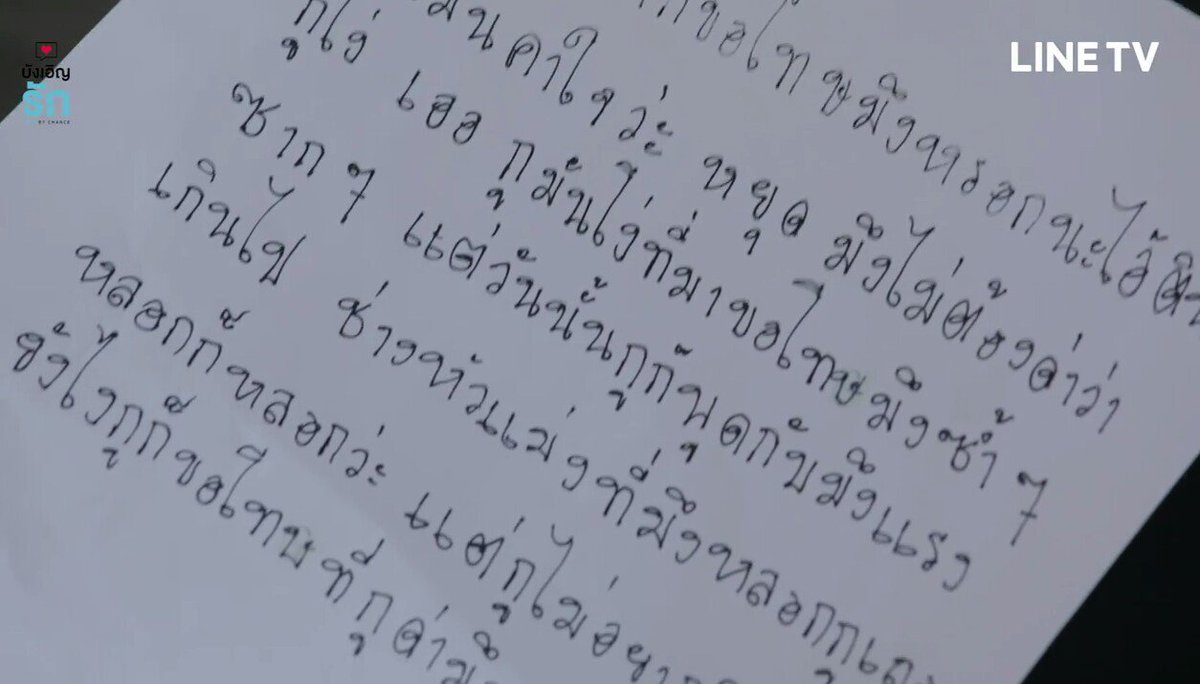 บังเอิญ
รัก
BY CHANCE
LINE TV
ขอโทษมึงหรอกนะไอ้
มันคาใจว่ะ หยุด มึงไม่ต้องด่าว่า
กูโง่ เออ กูมันโง่ที่มาขอโทษมึงซ้ำ ๆ
ซาก ๆ แต่วันนั้นกูก็พูดกับมึงแรง
เกินไป ช่างหัวแม่งที่มึงหลอกกู
หลอกก็หลอกว่ะ แต่กูไม่
ยังไงกูก็ขอโทษที่กูด่า